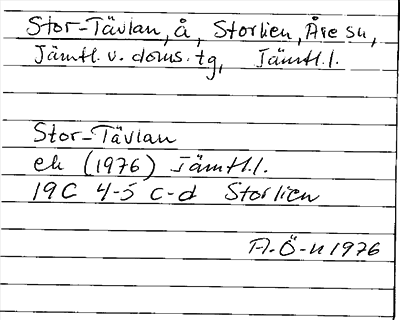 Stor-Tävlan, å, Storlien, Åre sn,
Jämtl. v. doms. tg, Jämtl. l.
Stor-Tävlan
ek (1976) Jämtl. l.
19C 4-5 c-d Storlien
A-Ö-n 1976